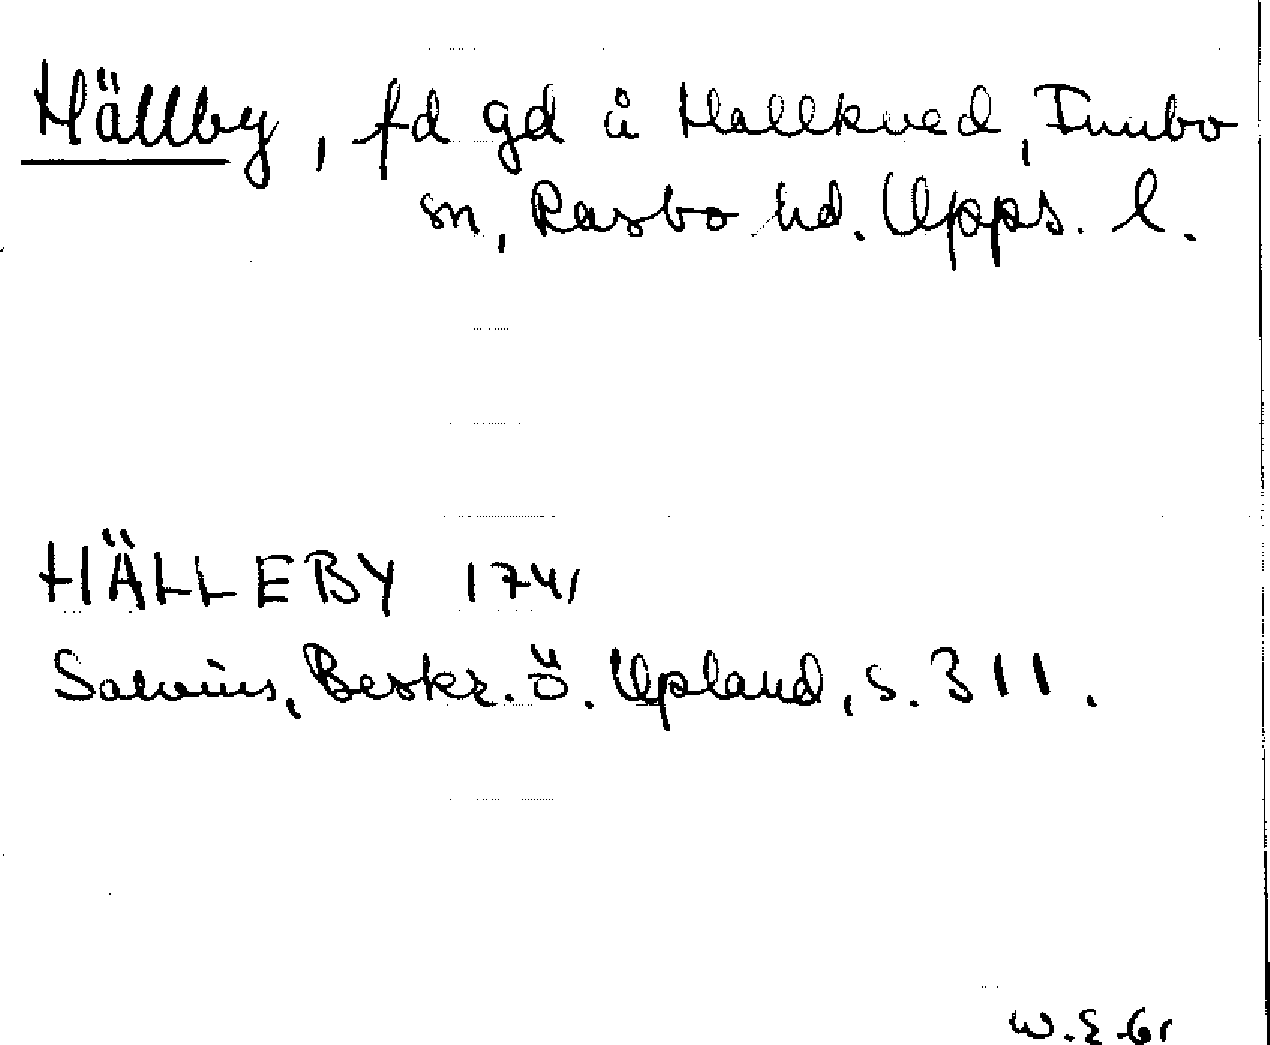 Hällby, fd gd å Hallkved, Funbo
sn, Rasbo hd. Upps. l.
HÄLLEBY 1741
Salvius, Beskr. ö. Upland, s. 311.
W.E.61